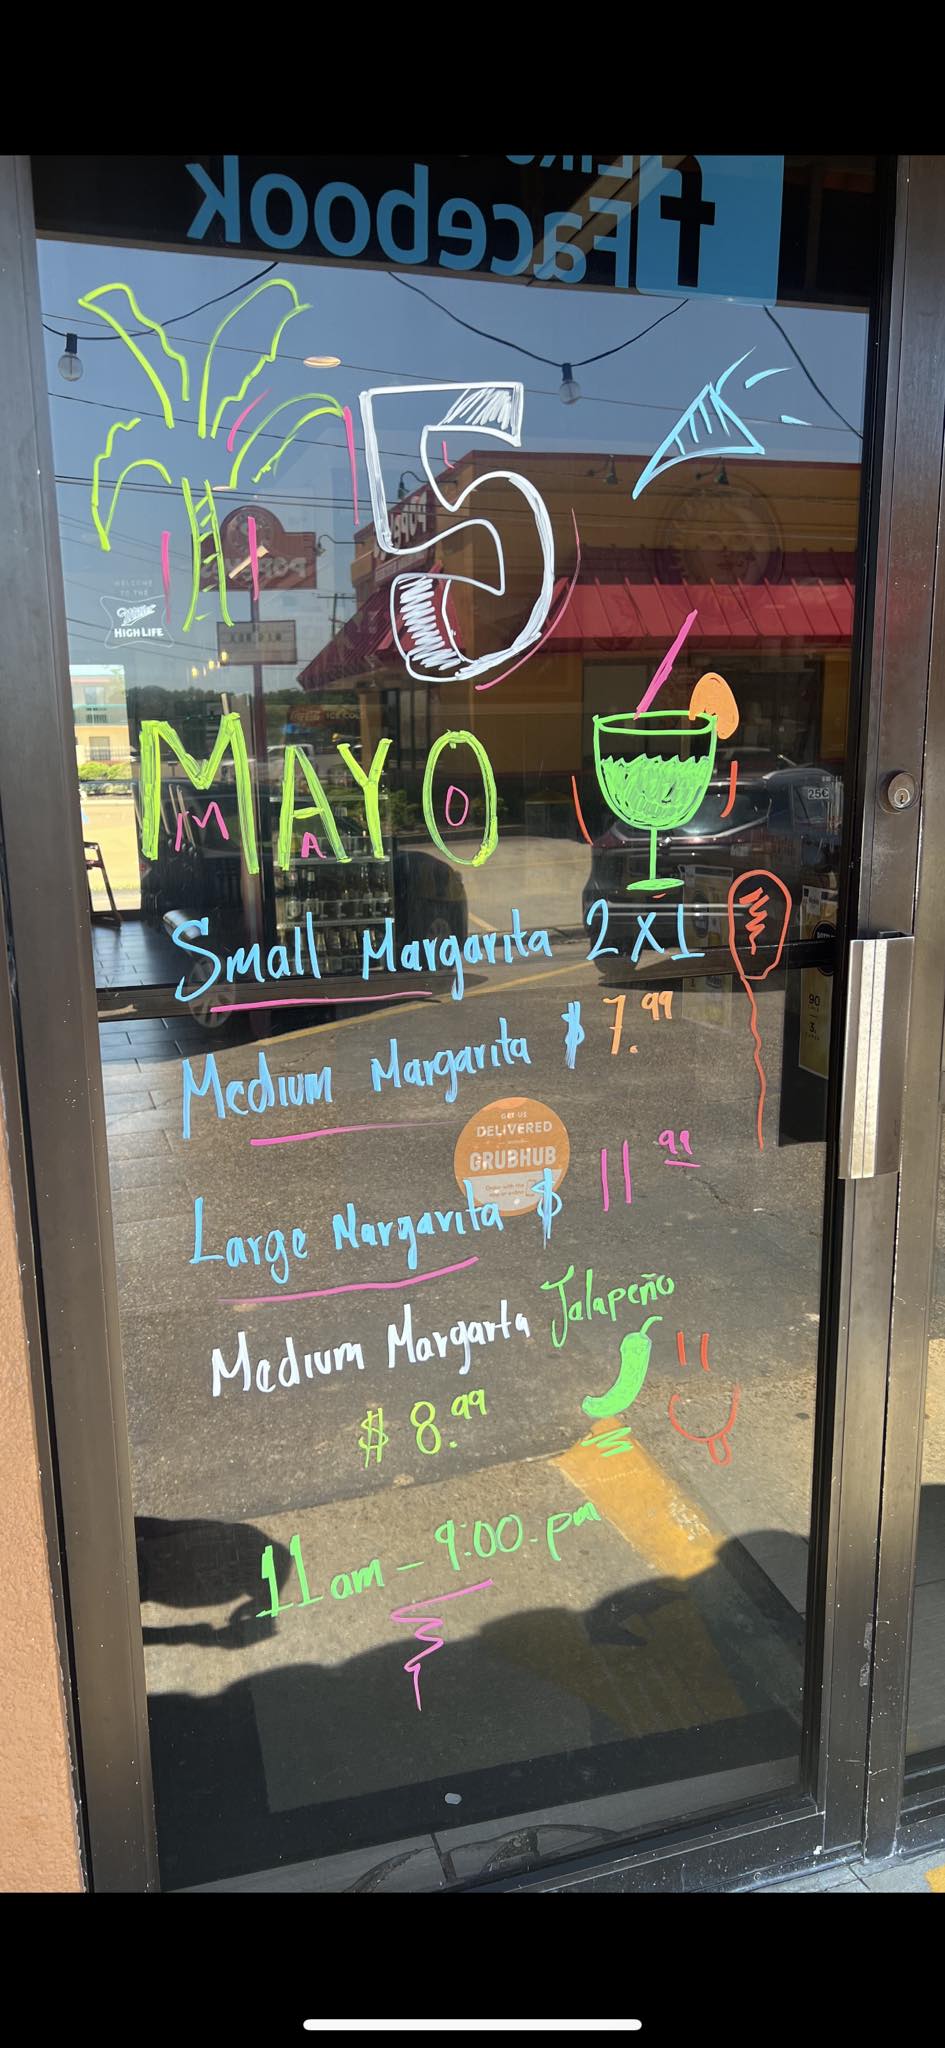 Like
Facebook
f
5
WELCOME
TO THE
Miller
HIGH LIFE
MAYO
M A O
ICE COLD
25¢
Small Margarita 2x1
Medium Margarita $7.99
90
3.
GET US
DELIVERED
GRUBHUB
Large Margarita $11.99
Medium Margarta Jalapeño
$8.99
11am-9:00-pm